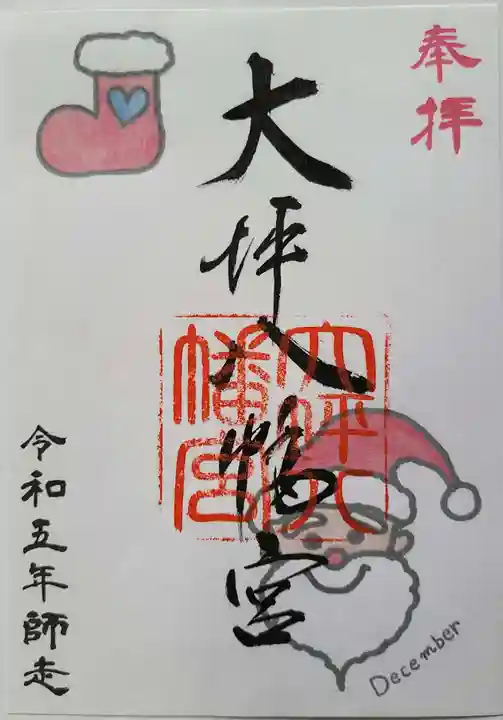 奉拝
大坪八幡宮
大坪八
幡宮
令和五年師走
December